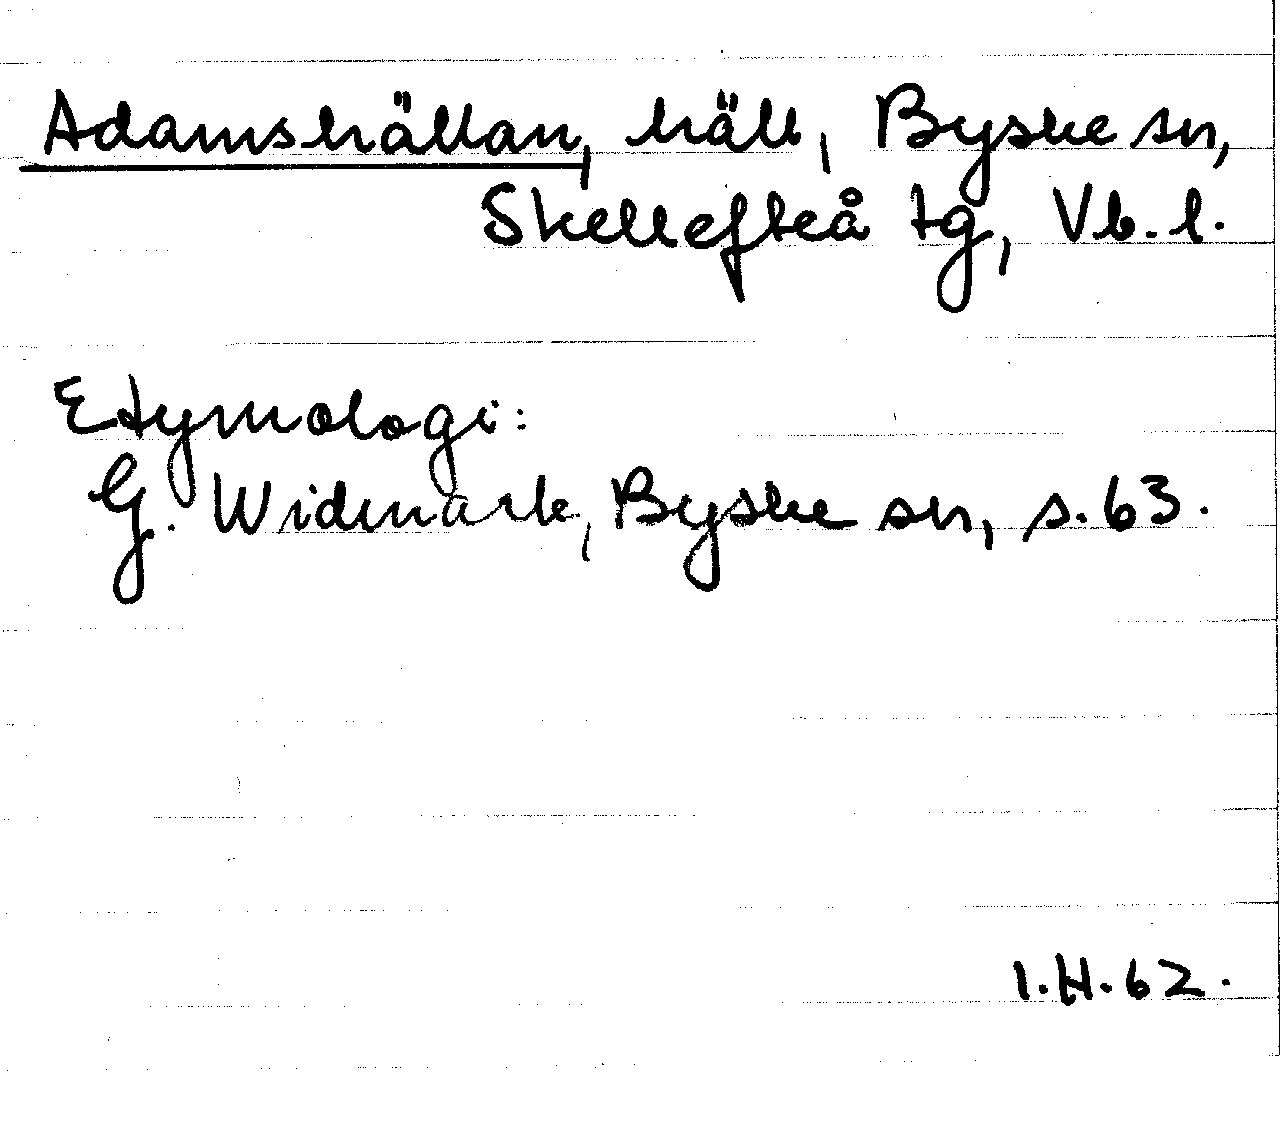 Adamshällan, häll, Byske sn,
Skellefteå tg, Vb. l.
Etymologi:
G. Widmark, Byske sn, s. 63.
I.H. 62.